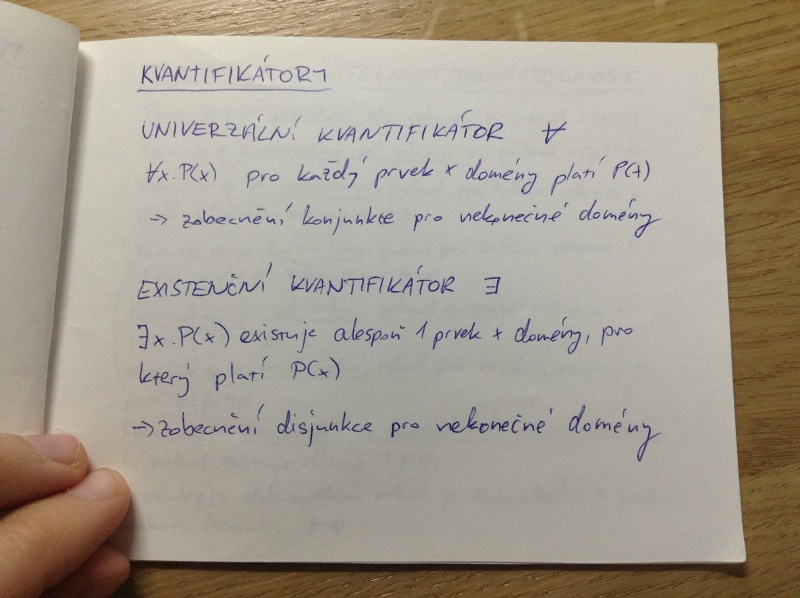 KVANTIFIKÁTORY
UNIVERZÁLNÍ KVANTIFIKÁTOR ∀
∀x.P(x) pro každý prvek x domény platí P(x)
→ zobecnění konjunkte pro nekonečné domény
EXISTENČNÍ KVANTIFIKÁTOR ∃
∃x.P(x) existuje alespoň 1 prvek x domény, pro
který platí P(x)
→ zobecnění disjunkce pro nekonečné domény